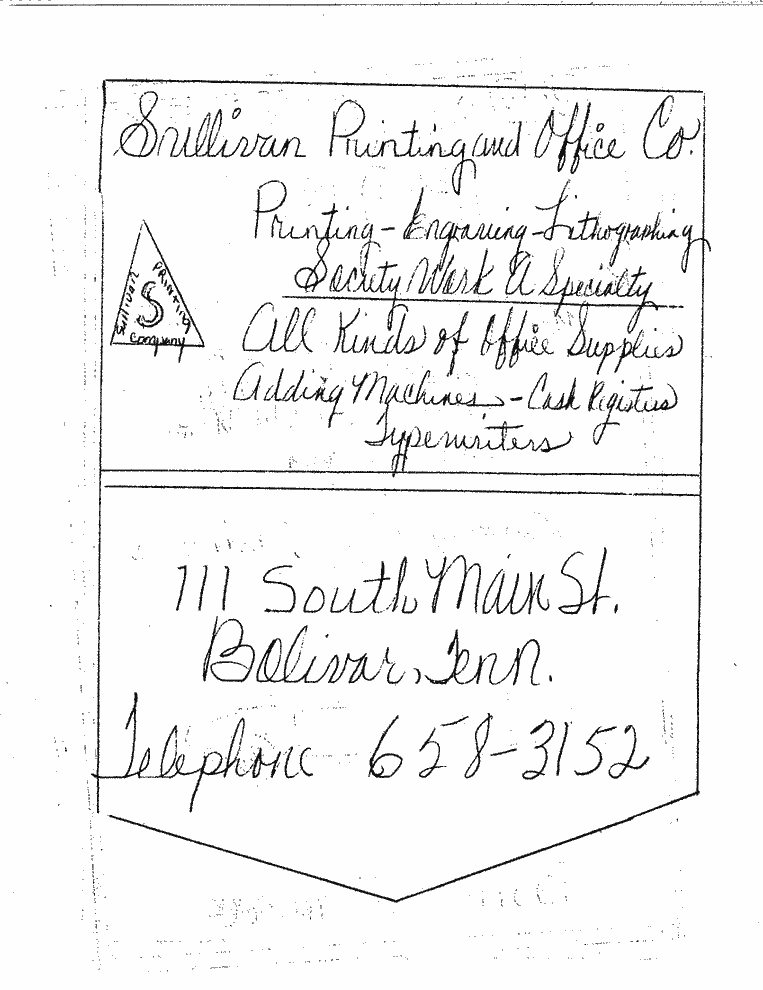 Sullivan Printing and Office Co.
Printing - Engraving - Lithographing
Society Work A Specialty
Sullivan PRINTING Company
S
All Kinds of Office Supplies
Adding Machines - Cash Registers
Typewriters
111 South Main St.
Bolivar, Tenn.
Telephone 658-3152